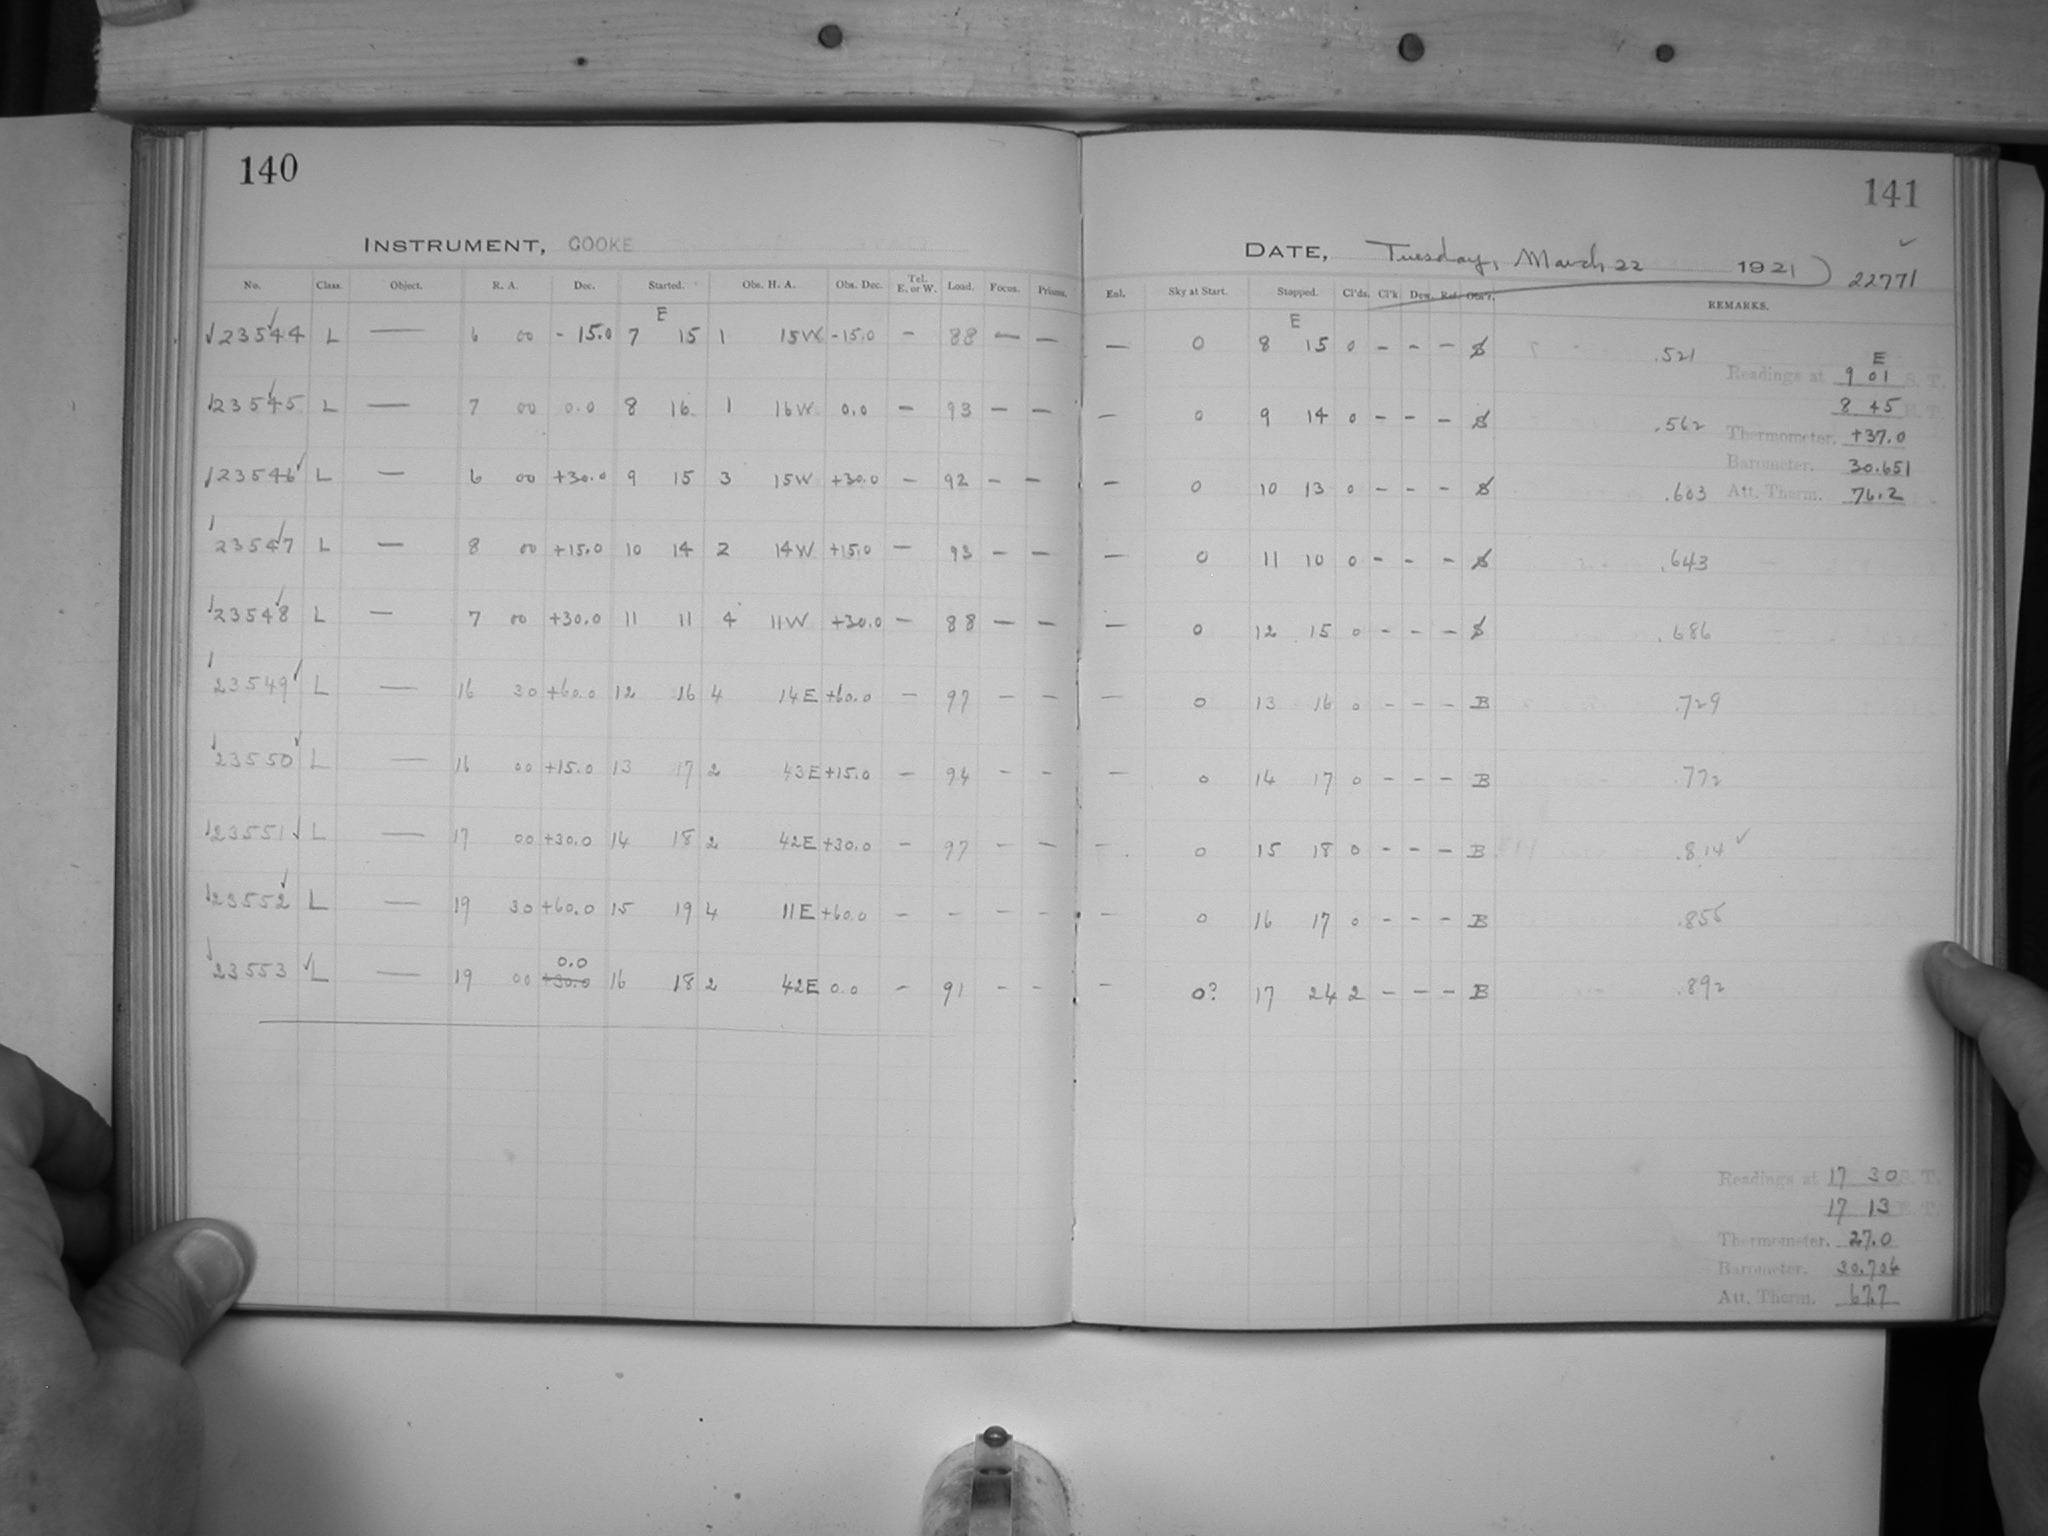 140
INSTRUMENT, COOKE
No. Class. Object. R. A. Dec. Started. Obs. H. A. Obs. Dec. Tel. E. or W. Load. Focus. Prisms.
E
23544 L — 6 00 -15.0 7 15 1 15W -15.0 - 88 — —
23545 L — 7 00 0.0 8 16 1 16W 0.0 - 93 - —
23546 L — 6 00 +30.0 9 15 3 15W +30.0 - 92 - —
23547 L — 8 00 +15.0 10 14 2 14W +15.0 — 93 — —
23548 L — 7 00 +30.0 11 11 4 11W +30.0 — 88 — —
23549 L — 16 30 +60.0 12 16 4 14E +60.0 — 97 - —
23550 L — 16 00 +15.0 13 17 2 43E +15.0 - 94 - -
23551 L — 17 00 +30.0 14 18 2 42E +30.0 - 97 - —
23552 L — 19 30 +60.0 15 19 4 11E +60.0 - - - -
0.0
23553 L — 19 00 +30.0 16 18 2 42E 0.0 - 91 - -
141
DATE, Tuesday, March 22 1921 22771
Enl. Sky at Start. Stopped. Cl'ds. Cl'k Dew. Ref. Obs'r. REMARKS.
E
— 0 8 15 0 - - - S .521
— 0 9 14 0 - - - S .562
— 0 10 13 0 - - - S .603
— 0 11 10 0 - - - S .643
— 0 12 15 0 - - - S .686
— 0 13 16 0 - - - B .729
— 0 14 17 0 - - - B .772
— 0 15 18 0 - - - B .814
— 0 16 17 0 - - - B .855
— 0? 17 24 2 - - - B .892
E
Readings at 9 01 S. T.
8 45 E. T.
Thermometer. +37.0
Barometer. 30.651
Att. Therm. 76.2
Readings at 17 30 S. T.
17 13 E. T.
Thermometer. 27.0
Barometer. 30.704
Att. Therm. 67.7